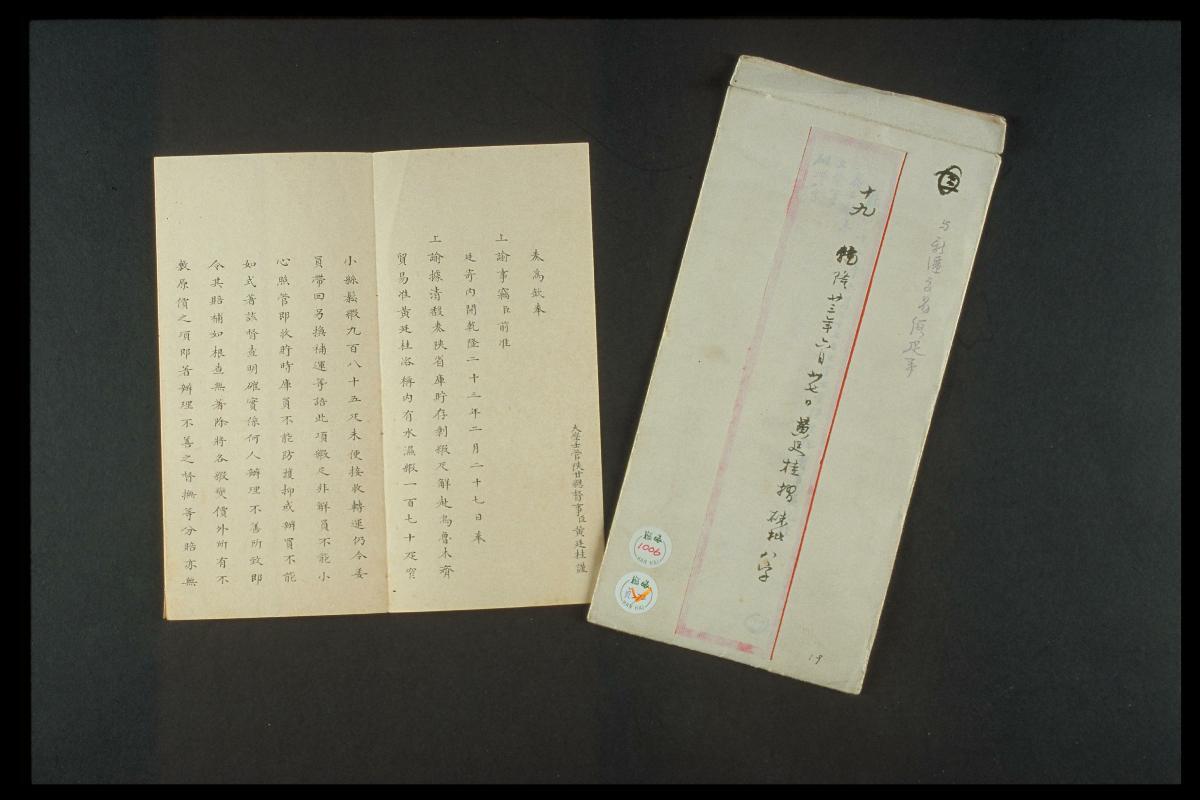 大學士管陝甘總督事臣黃廷桂謹
奏為欽奉
上諭事竊臣前准
廷寄內開乾隆二十三年二月二十七日奉
上諭據清馥奏陝省庫貯存剩緞疋解赴烏魯木齊
貿易准黃廷桂咨稱內有水濕緞一百七十疋窄
小縣鬆緞九百八十五疋未便接收轉運仍令委
員帶回另換補運等語此項緞疋非解員不能小
心照管即收貯時庫員不能防護抑或辦買不能
如式著該督查明確實係何人辦理不善所致即
令其賠補如根查無著除將各緞變價外所有不
敷原價之項即著辦理不善之督撫等分賠亦無
十九
乾隆廿三年六月廿七日黃廷桂摺 硃批八字
与新疆交易緞疋事
翰海
1006
HAN HAI
翰海
HAN HAI
19